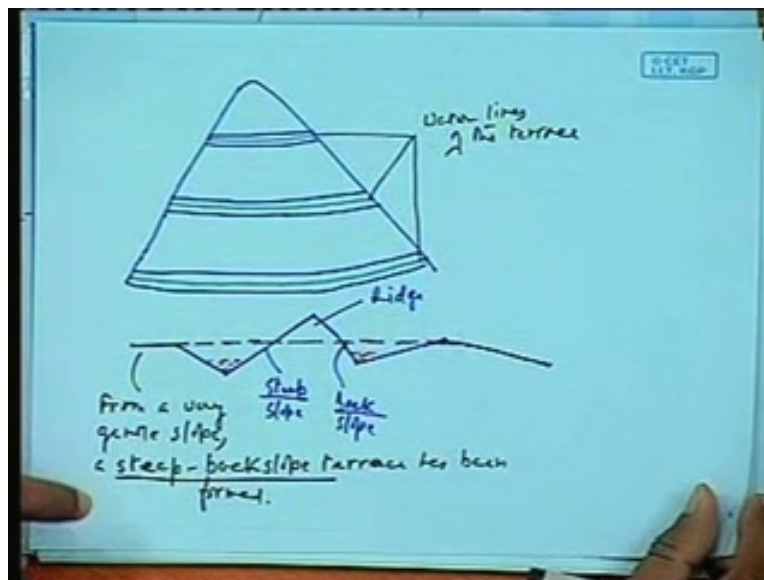 © CET
I.I.T. KGP
Water lines
of the terrace
Ridge
Steep
slope
Back
slope
From a very
gentle slope,
a steep-backslope terrace has been
formed.